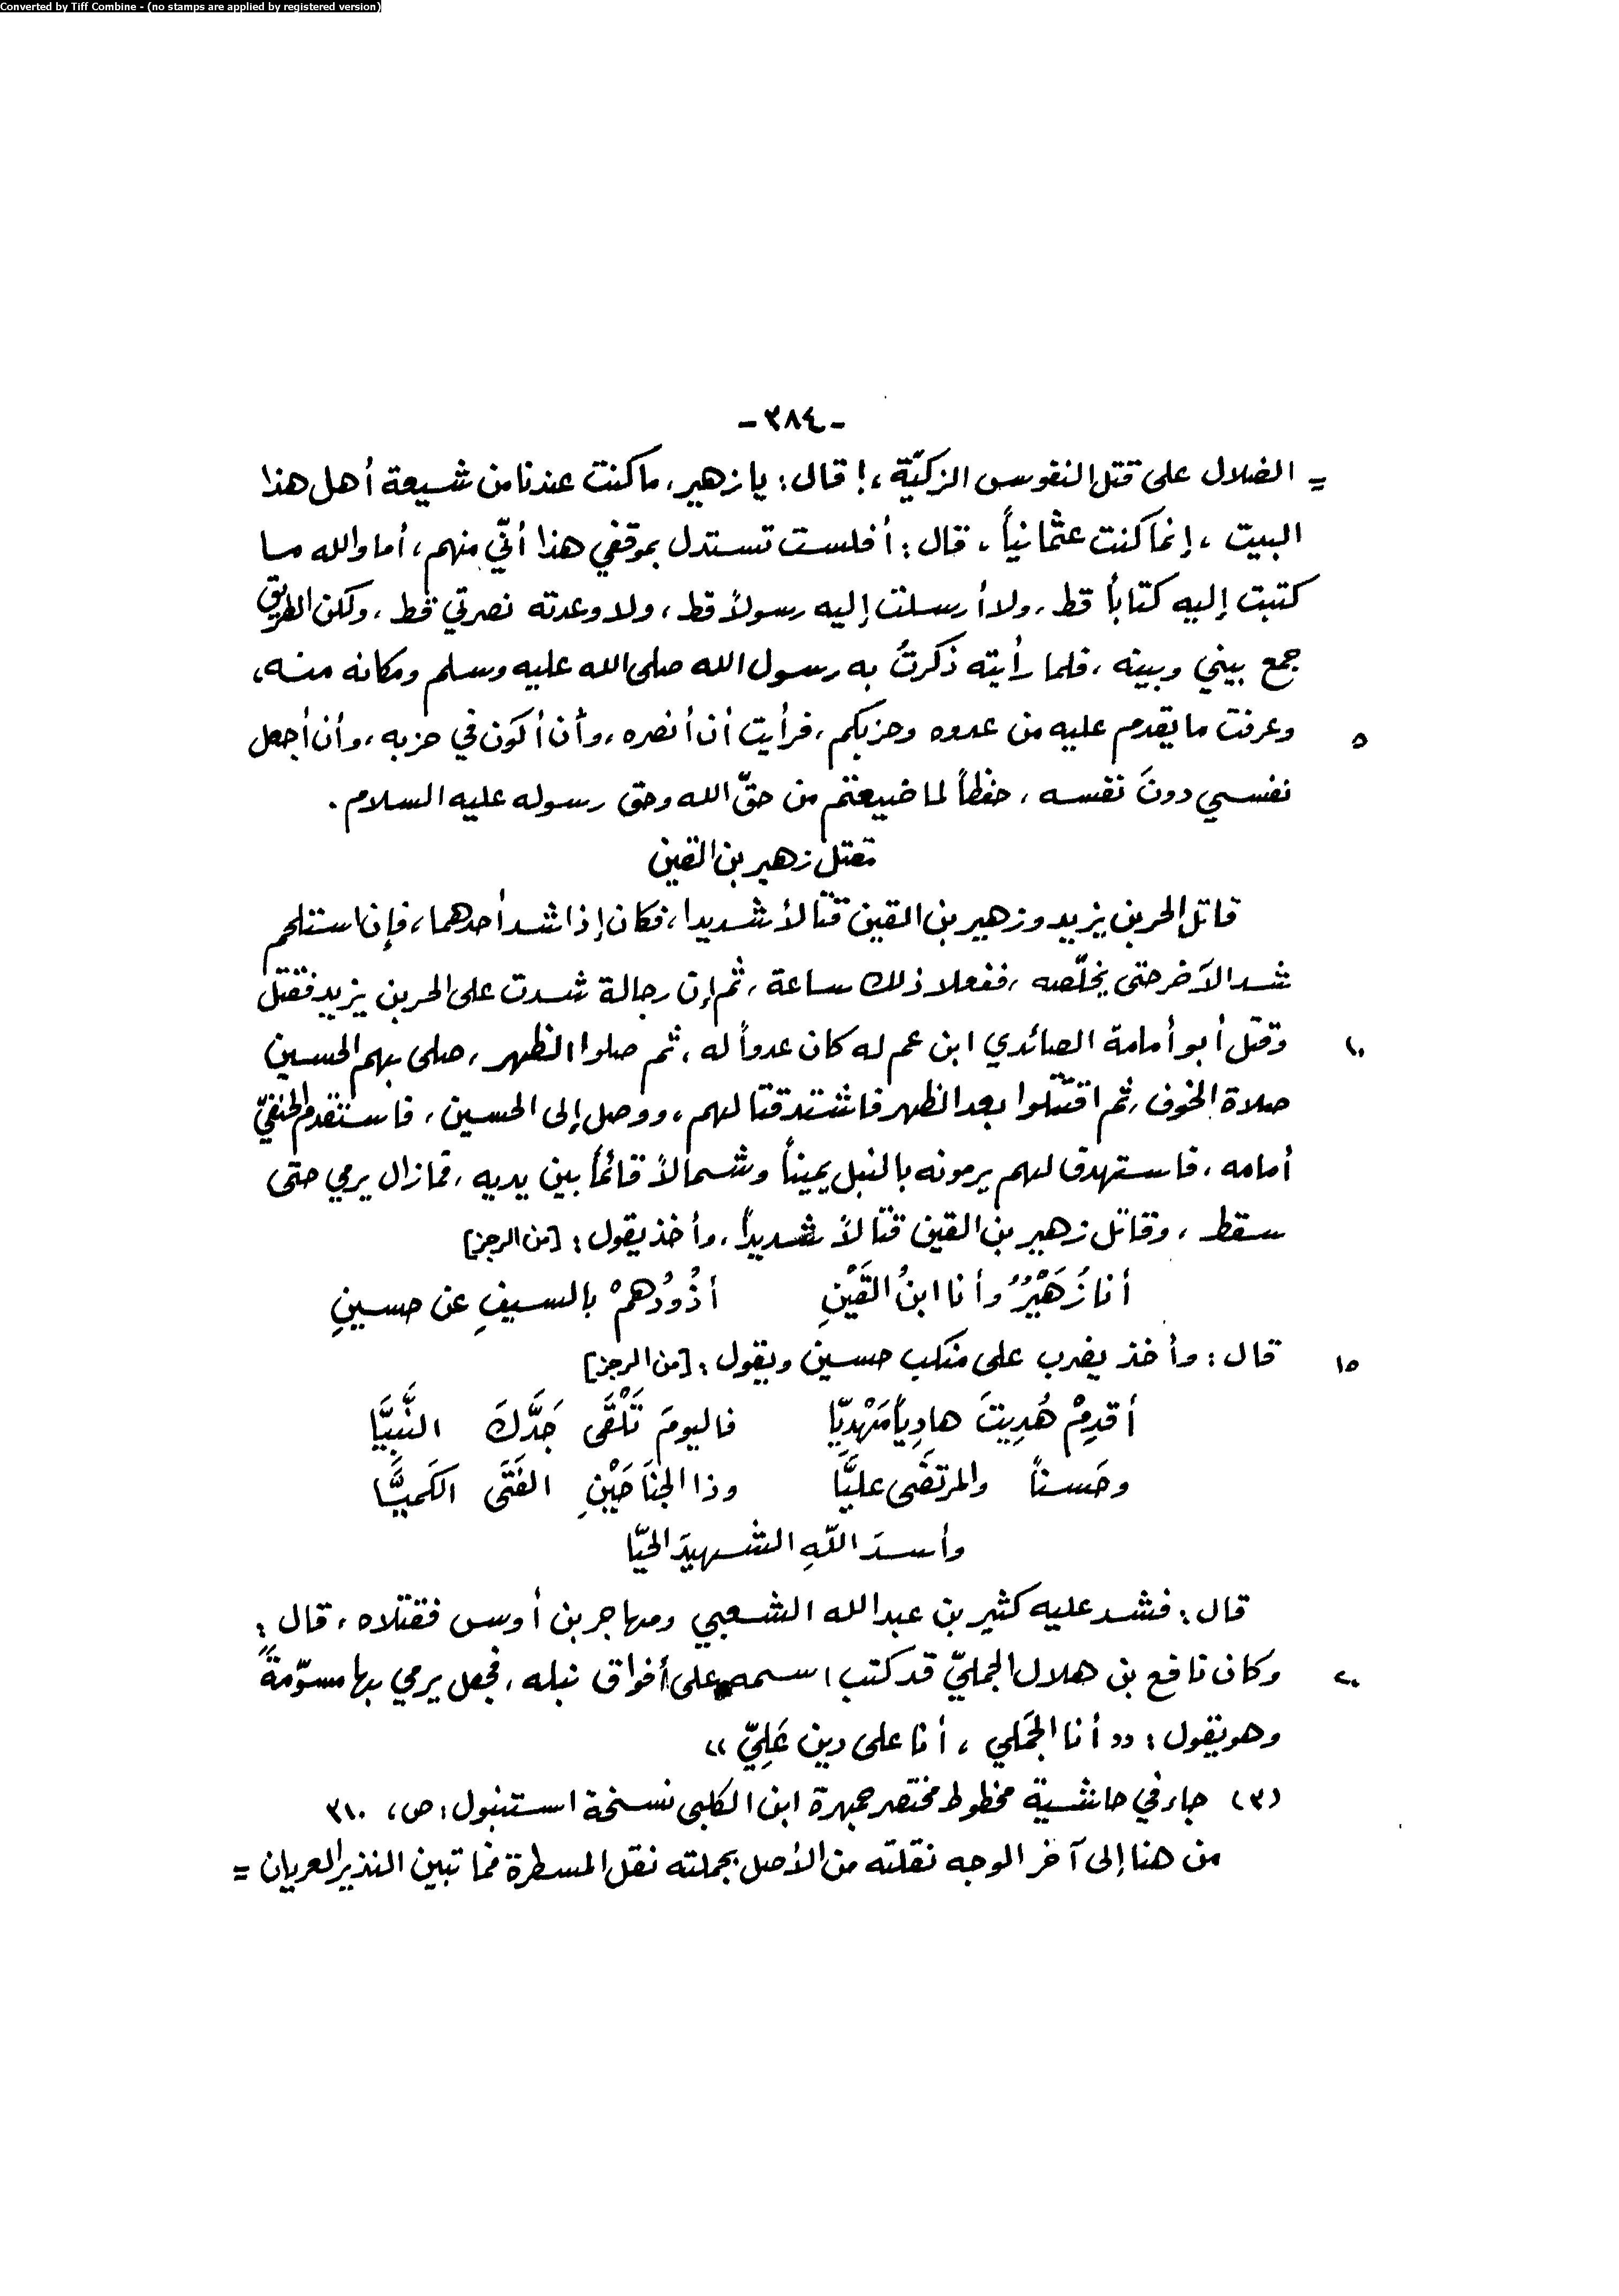 Converted by Tiff Combine - (no stamps are applied by registered version)
-٣٨٤-
= الضلال على قتل النفوس الزكيّة،! قال: يا زهير، ما كنت عندنا من شيعة أهل هذا
البيت، إنما كنت عثمانياً، قال: أفلست تستدل بموقفي هذا أنّي منهم، أما والله ما
كتبت إليه كتاباً قط، ولا أرسلت إليه رسولاً قط، ولا وعدته نصرتي قط، ولكن الطريق
جمع بيني وبينه، فلما رأيته ذكرتُ به رسول الله صلى الله عليه وسلم ومكانه منه،
٥ وعرفت ما يقدم عليه من عدوه وحزبكم، فرأيت أن أنصره، وأن أكون في حزبه، وأن أجعل
نفسي دونَ نفسه، حفظاً لما ضيعتم من حقّ الله وحق رسوله عليه السلام.
مقتل زهير بن القين
قاتل الحر بن يزيد وزهير بن القين قتالاً شديدا، فكان إذا شد أحدهما، فإن استلحم
شد الآخر حتى يخلّصه، ففعلا ذلك ساعة، ثم إن رجالة شدت على الحر بن يزيد فقتل
١٠ وقتل أبو أمامة الصائدي ابن عم له كان عدواً له، ثم صلوا الظهر، صلى بهم الحسين
صلاة الخوف، ثم اقتتلوا بعد الظهر فاشتد قتالهم، ووصل إلى الحسين، فاستقدم الحنفيّ
أمامه، فاستهدف لهم يرمونه بالنبل يميناً وشمالاً قائماً بين يديه، فما زال يرمي حتى
سقط، وقاتل زهير بن القين قتالاً شديداً، وأخذ يقول: [من الرجز]
أنا زُهَيْرٌ وأنا ابنُ القَيْنِ أذُودُهمْ بالسيفِ عن حسينِ
١٥ قال: وأخذ يضرب على منكب حسين ويقول: [من الرجز]
أقدِمْ هُدِيتَ هادِياً مَهْدِيّا فاليومَ تَلْقَى جَدَّكَ النَّبِيَّا
وحَسناً والمرتضَى عليَّا وذا الجنَاحَيْنِ الفَتَى الكَمِيَّا
وأسدَ اللهِ الشهيدَ الحيّا
قال: فشد عليه كثير بن عبدالله الشعبي ومهاجر بن أوس فقتلاه، قال:
٢٠ وكان نافع بن هلال الجمليّ قد كتب اسمه على أفواق نبله، فجعل يرمي بها مسوّمةً
وهو يقول: «أنا الجَملي، أنا على دين عَلِيّ»
(٣) جاء في حاشية مخطوط مختصر جمهرة ابن الكلبي نسخة استنبول: ص، ٣١٠
من هنا إلى آخر الوجه نقلته من الأصل بجملته نقل المسطرة فما تبين النذير العريان =